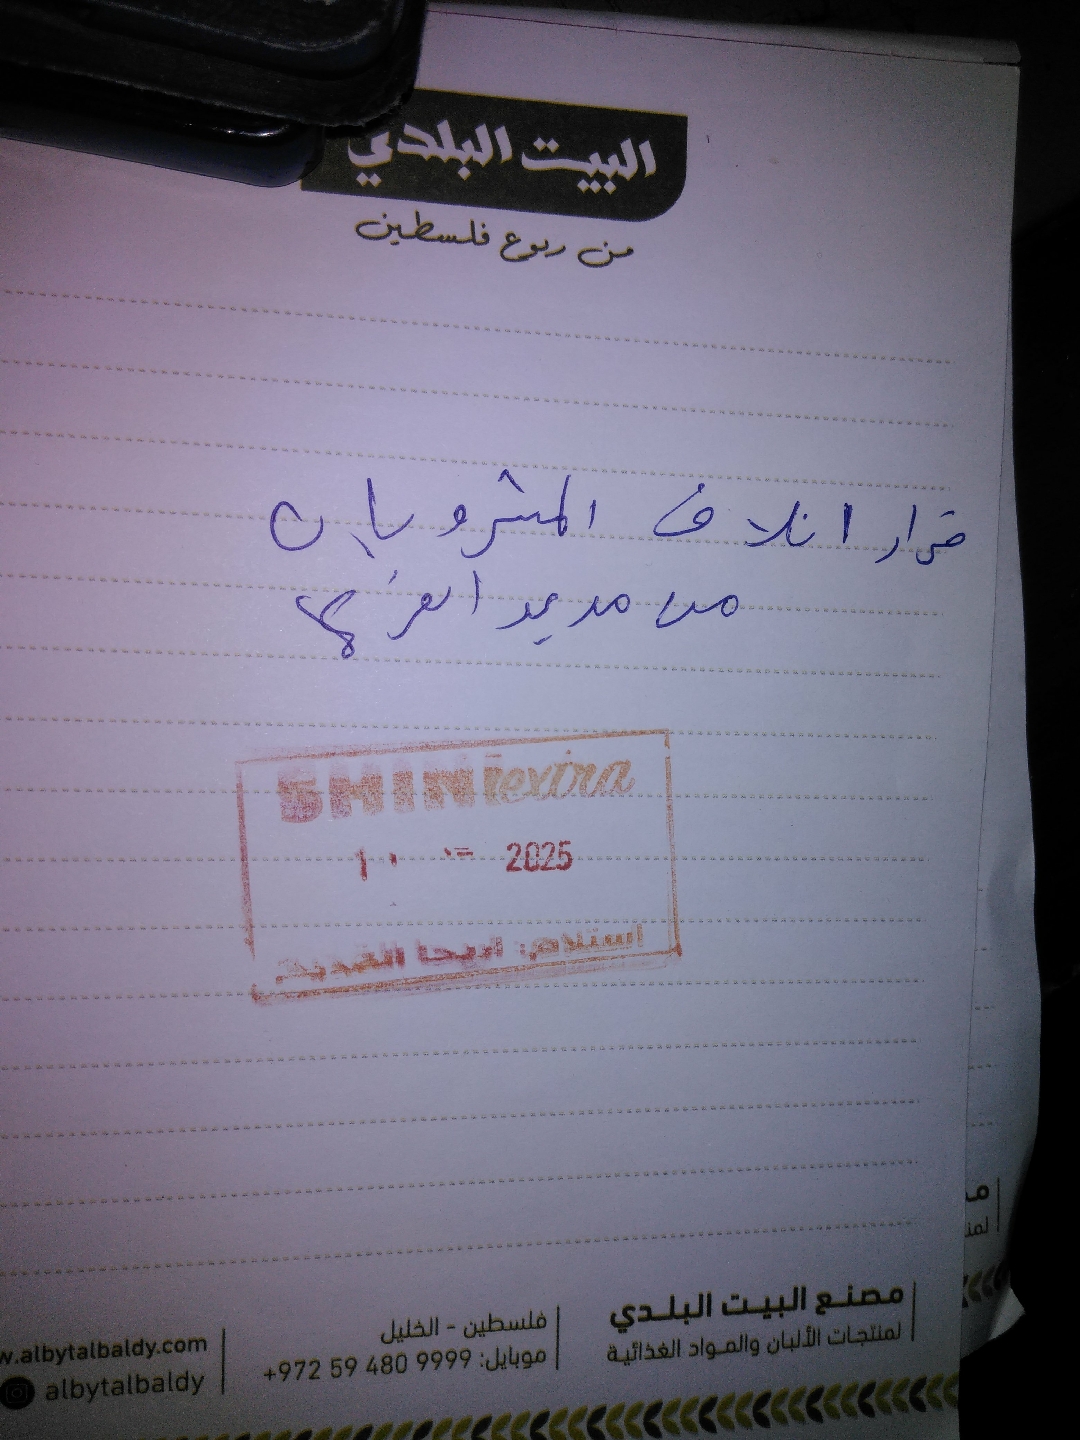 البيت البلدي
من ربوع فلسطين
قرار اتلاف المشروبات
من مدير الفرع
SHINI extra
2025
استلام: اريحا القديمة
مصنع البيت البلدي
لمنتجات الألبان والمواد الغذائية
فلسطين - الخليل
موبايل: 9999 480 59 972+
w.albytalbaldy.com
albytalbaldy